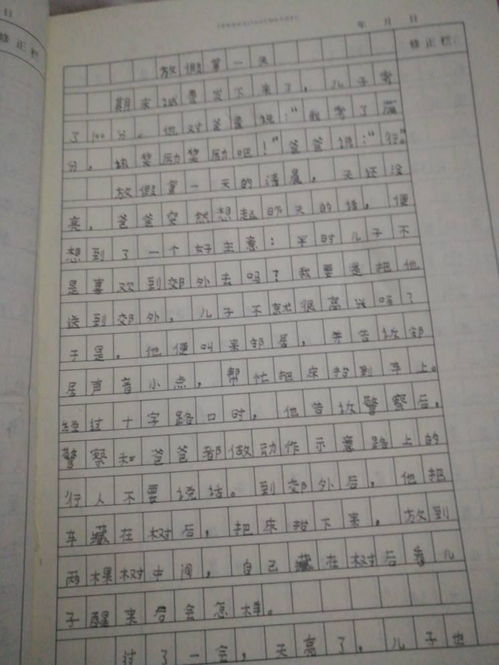 年 月 日
修正栏
放假第一天
期末试卷发下来了，儿子考
了100分。他对爸爸说："我考了满
分，快奖励奖励吧！"爸爸说："行。"
放假第一天的清晨，天还没
亮，爸爸突然想起昨天的话，便
想到了一个好主意：平时儿子不
是喜欢到郊外去吗？我要是把他
送到郊外，儿子不就很高兴吗？
于是，他便叫来邻居，并告诉邻
居声音小点，帮忙把床抬到车上。
经过十字路口时，他告诉警察后，
警察和爸爸都做动作示意路上的
行人不要说话。到郊外后，他把
车藏在树后，把床抬下来，放到
两棵树中间，自己藏在树后看儿
子醒来会怎样。
过了一会，天亮了，儿子也
日
修正栏